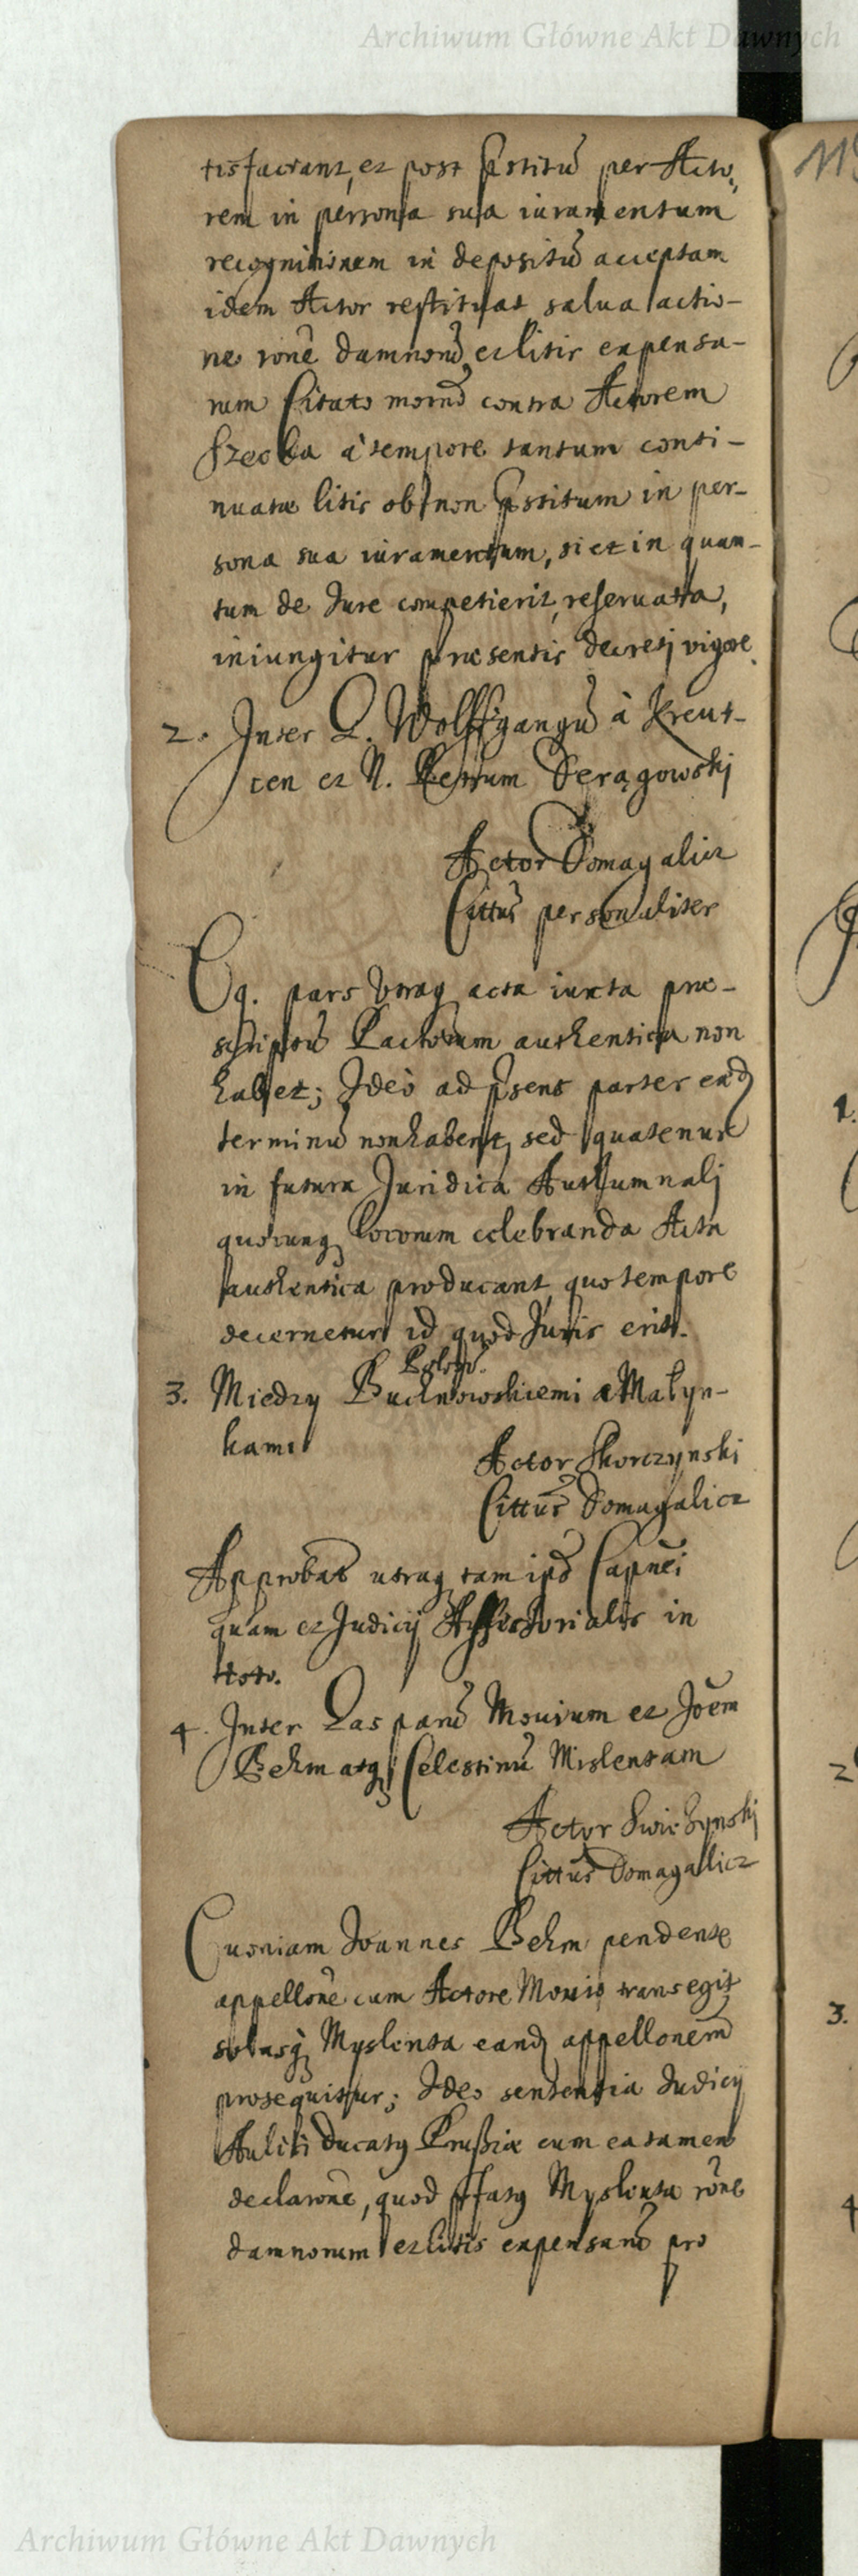 Archiwum Główne Akt Dawnych
tisfaciant, et post pstitũ per Acto,
rem in persona sua iuramentum
recognitionem in depositũ acceptam
idem Actor restituat salua actio-
ne ronẽ damnorũ et litis expensa-
rum Citato motũ contra Actorem
Szeoba à tempore tantum conti-
nuatæ litis ob non pstitum in per-
sona sua iuramentum, si et in quan-
tum de Jure competierit, reseruata,
iniungitur præsentis decretj vigore.
2. Inter G. Wolffgangũ à Kreut-
cen et N. Petrum Deragowskj
Actor Domagalicz
Cittus personaliter
Qq. pars vtraq acta iuxta præ-
scriptũ Pactorum authentica non
habet; Ideò ad psens partes eñd
terminũ non habent, sed quatenus
in futura Juridica Authumnalj
quocunq locorum celebranda Acta
authentica producant, quo tempore
decernetur id quod Juris erit.
3. Miedzy Buchnowskiemi a Małyn-
kami
Actor Skorczynski
Cittus Domagalicz
Approbat utraq tam ipđ Capnẽi
quàm et Judicij Assessorialis in
toto.
4. Inter Casparũ Mouium et Joẽm
Behm atq Celestinũ Mislentam
Actor Swiezynskj
Cittus Domagalicz
Quoniam Joannes Behm pendente
appellonẽ cum Actore Mouio transegit
solusq Myslenta eand appellonem
prosequitur; Ideo sententia Judicij
Aulici Ducatus Prussiæ cum ea tamen
declaronẽ, quod pfatus Myslenta ronẽ
damnorum et litis expensarũ pro
3.
4
Archiwum Główne Akt Dawnych